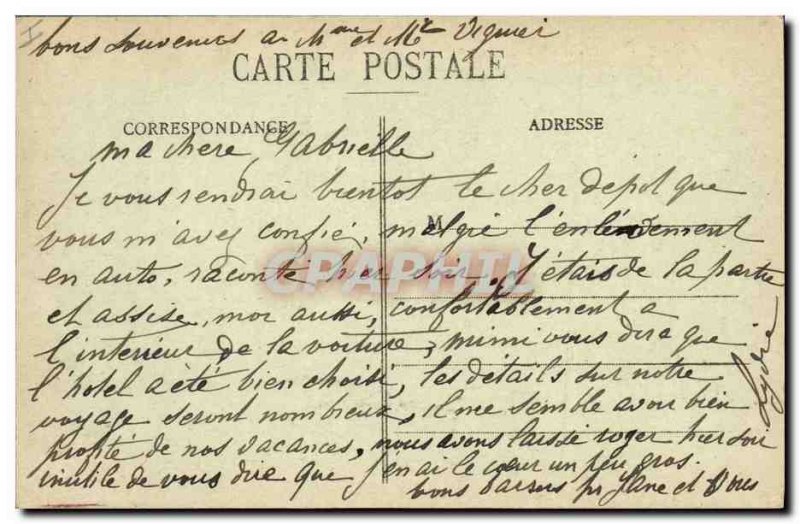 bons souvenirs a Mme et Mr Viguier
CARTE POSTALE
CORRESPONDANCE
ADRESSE
ma chere Gabrielle
Je vous rendrai bientot le cher depot que
M
vous m'avez confié, malgré l'enlèvement
en auto, raconté hier soir. J'étais de la partie
CPAPHIL
et assise, moi aussi, confortablement a
l'interieur de la voiture, mimi vous dira que
l'hotel a été bien choisi, les détails sur notre
voyage seront nombreux, il me semble avoir bien
profité de nos vacances, nous avons laissé roger hier soir
inutile de vous dire que j'en ai le cœur un peu gros.
bons baisers pr Jane et vous
Lydie